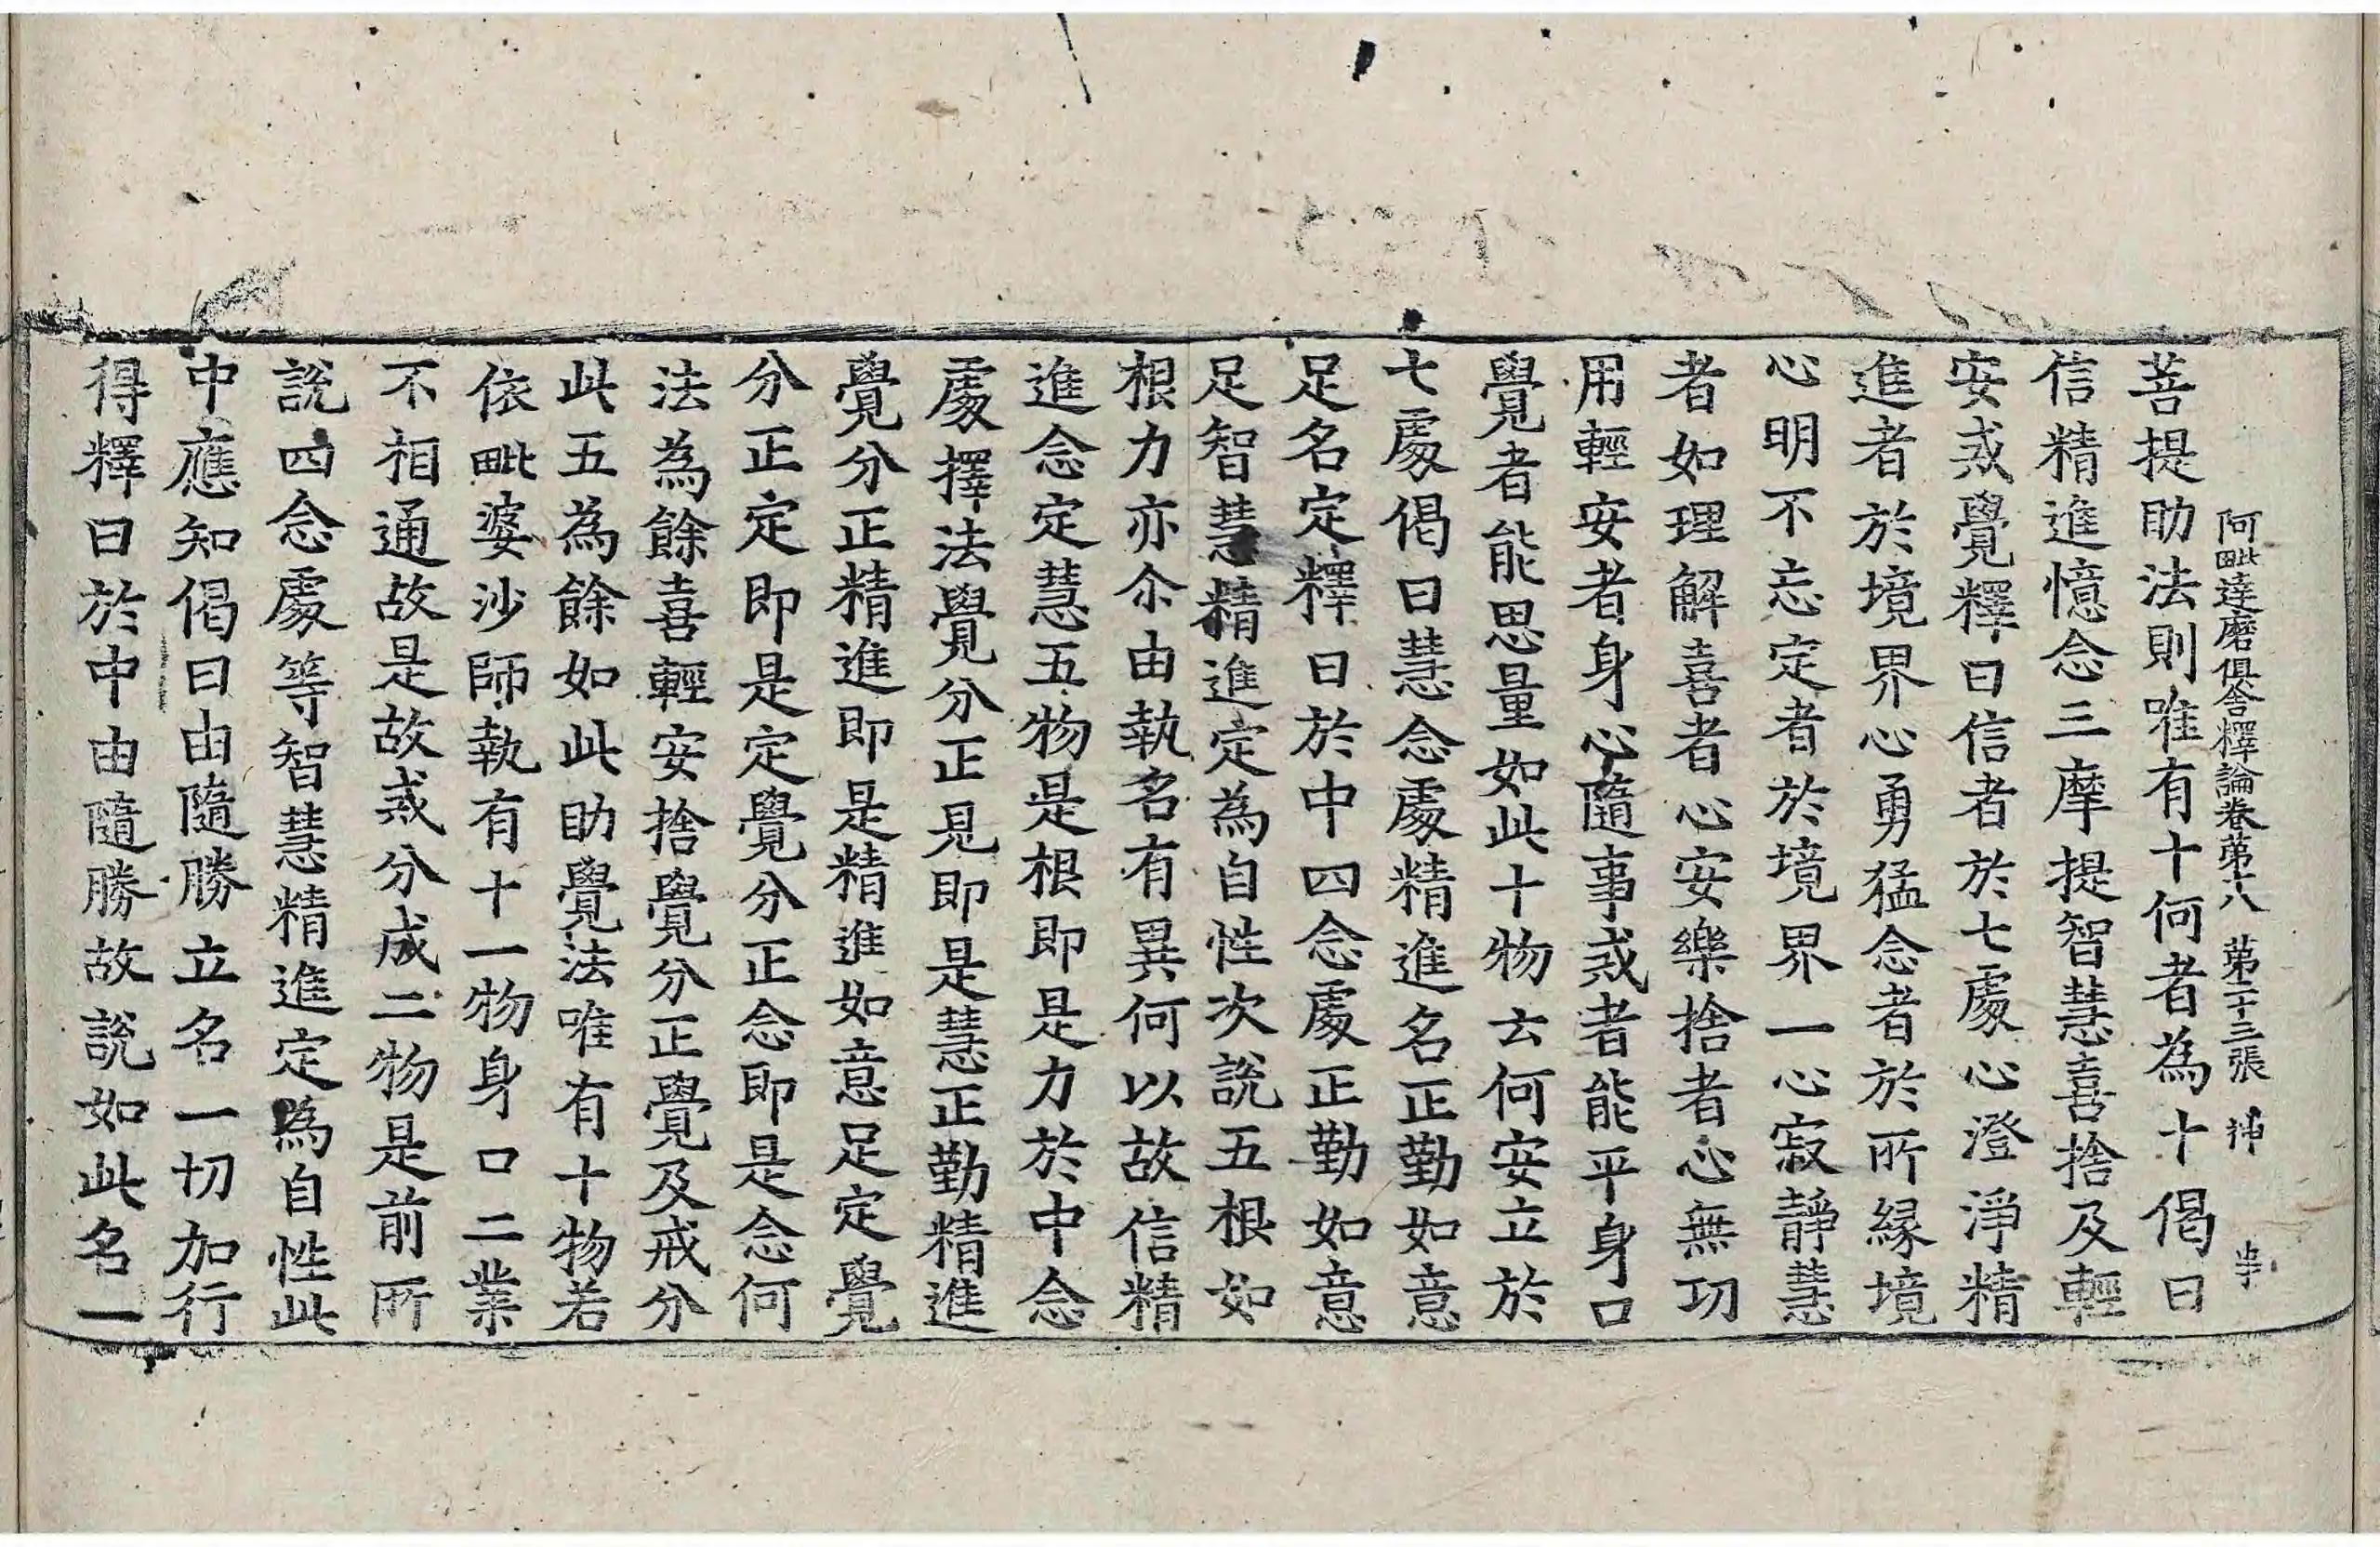 阿毗達磨俱舍釋論卷第十八　第二十三張
菩提助法則唯有十何者為十偈曰
信精進憶念三摩提智慧喜捨及輕
安戒覺釋曰信者於七處心澄淨精
進者於境界心勇猛念者於所緣境
心明不忘定者於境界一心寂靜慧
者如理解喜者心安樂捨者心無功
用輕安者身心隨事戒者能平身口
覺者能思量如此十物云何安立於
七處偈曰慧念處精進名正勤如意
足名定釋曰於中四念處正勤如意
足智慧精進定為自性次說五根如
根力亦尒由執名有異何以故信精
進念定慧五物是根即是力於中念
處擇法覺分正見即是慧正勤精進
覺分正精進即是精進如意足定覺
分正定即是定覺分正念即是念何
法為餘喜輕安捨覺分正覺及戒分
此五為餘如此助覺法唯有十物若
依毗婆沙師執有十一物身口二業
不相通故是故戒分成二物是前所
說四念處等智慧精進定為自性此
中應知偈曰由隨勝立名一切加行
得釋曰於中由隨勝故說如此名一